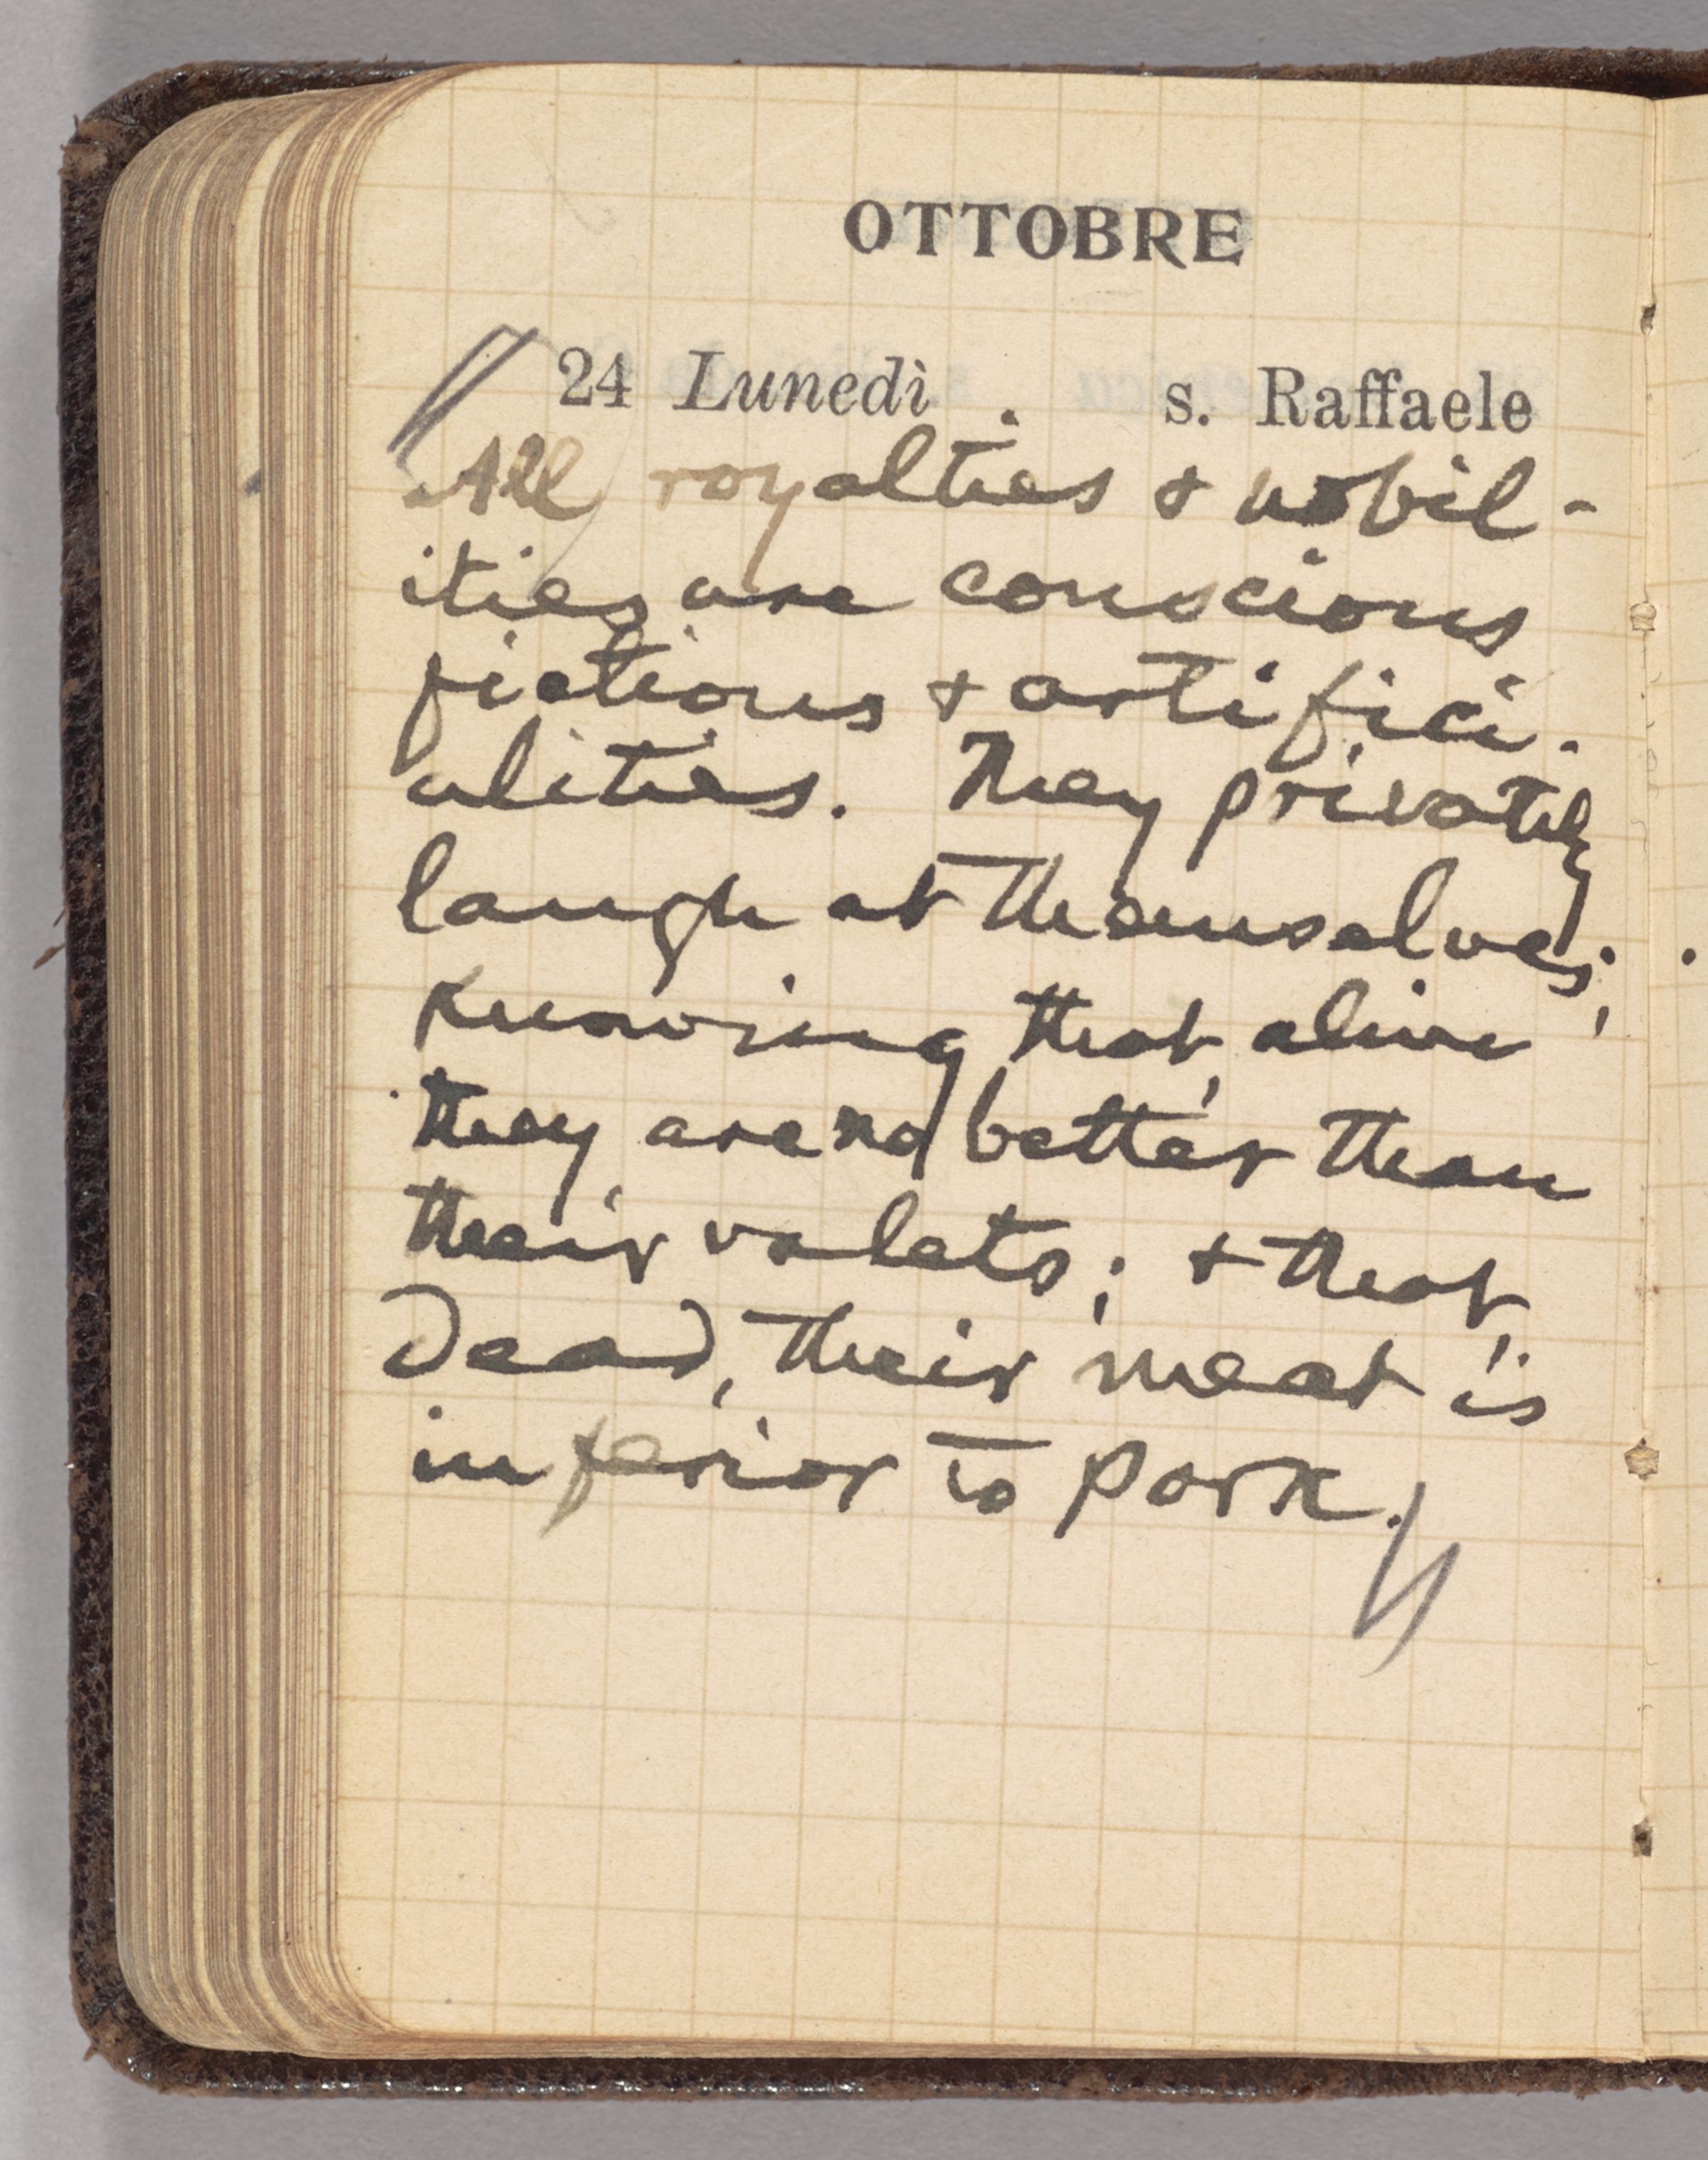 OTTOBRE
24 Lunedì . s. Raffaele
All royalties & nobil-
ities are conscious
fictions & artifici-
alities. They privately
laugh at themselves;
knowing that, alive
they are no better than
their valets; & that,
dead, their meat is
inferior to pork.